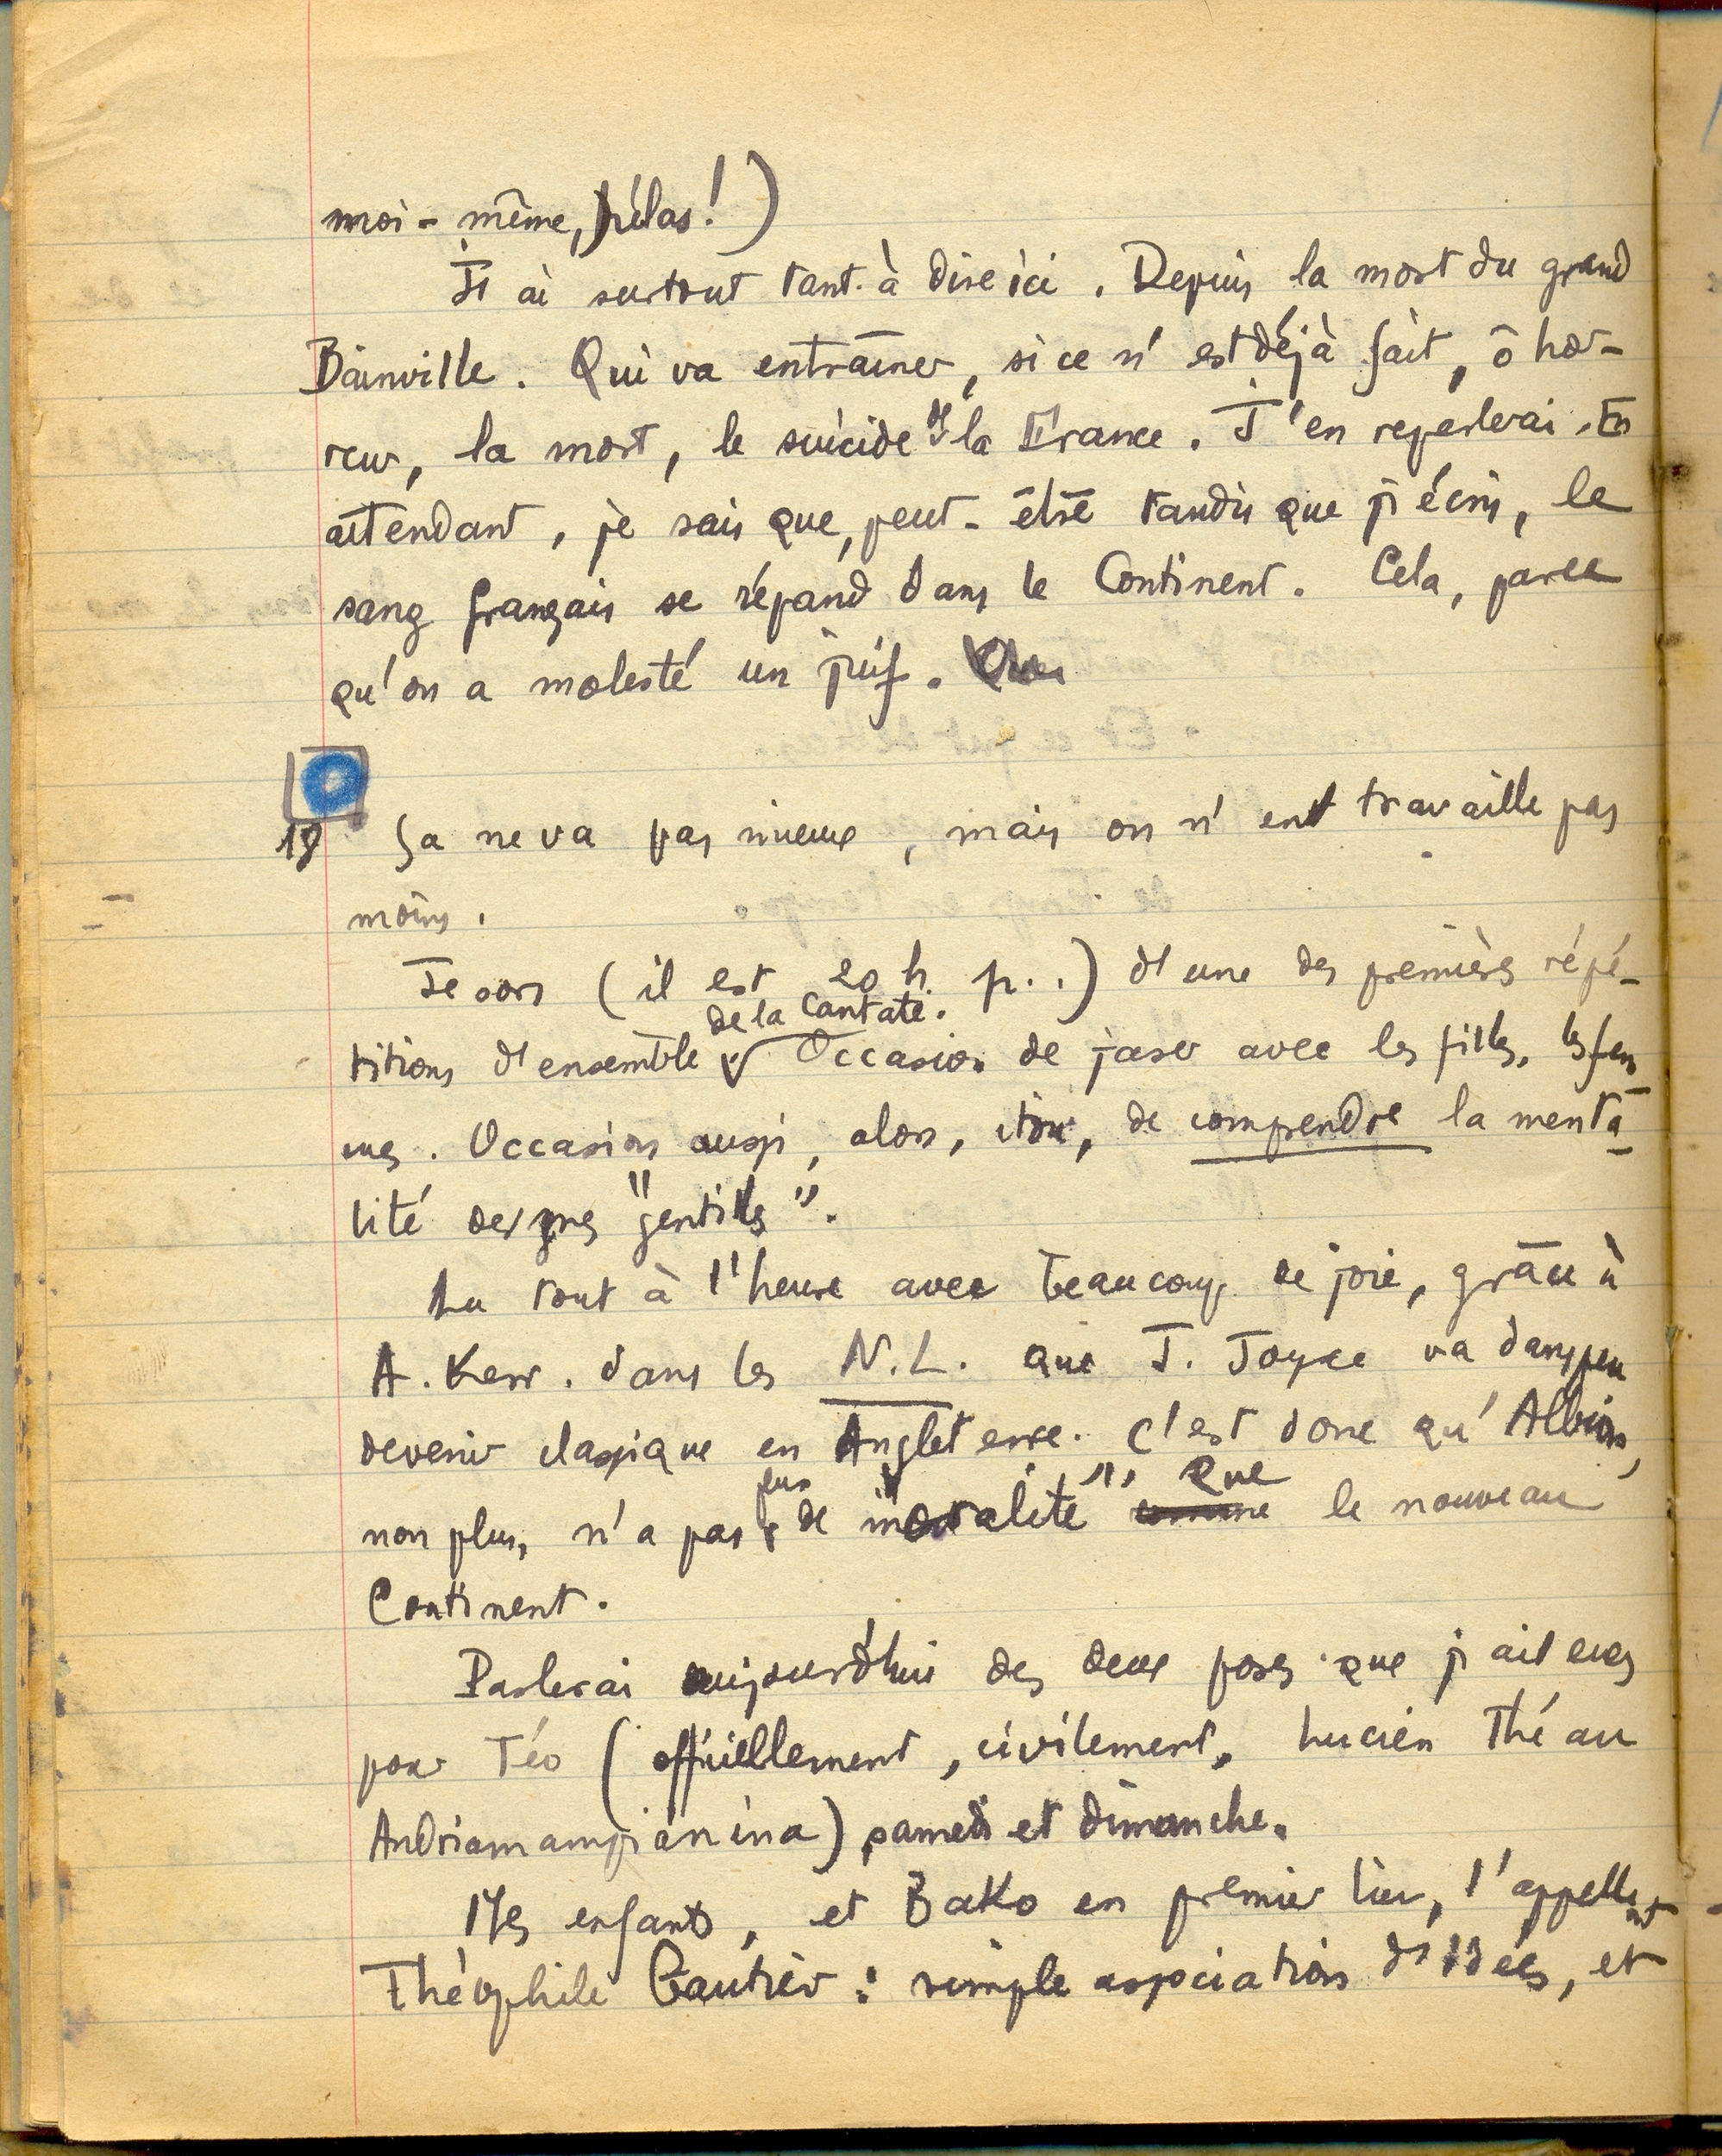 moi-même, hélas!)
J'ai surtout tant à dire ici. Depuis la mort du grand
Bainville. Qui va entraîner, si ce n'est déjà fait, ô hor-
reur, la mort, le suicide de la France. J'en reparlerai. En
attendant, je sais que, peut-être tandis que j'écris, le
sang français se répand dans le Continent. Cela, parce
qu'on a molesté un juif.
18 Ça ne va pas mieux, mais on n'en travaille pas
moins.
Je sors (il est 20 h. p..) d'une des premières répé-
titions d'ensemble de la Cantate. Occasion de jaser avec les filles, les fem
mes. Occasion aussi, alors, itou, de comprendre la menta-
lité des "gentils".
Lu tout à l'heure avec beaucoup de joie, grâce à
A. Kerr. dans les N.L. que J. Joyce va dans peu
devenir classique en Angleterre. C'est donc qu'Albion,
non plus, n'a pas plus de moralité" que le nouveau
Continent.
Parlerai aujourd'hui des deux poses que j'ai eues
pour Téo (officiellement, civilement, Lucien Théau
Andriamampianina) samedi et dimanche.
Mes enfants, et Bako en premier lieu, l'appellent
Théophile Gautier: simple association d'idées, et